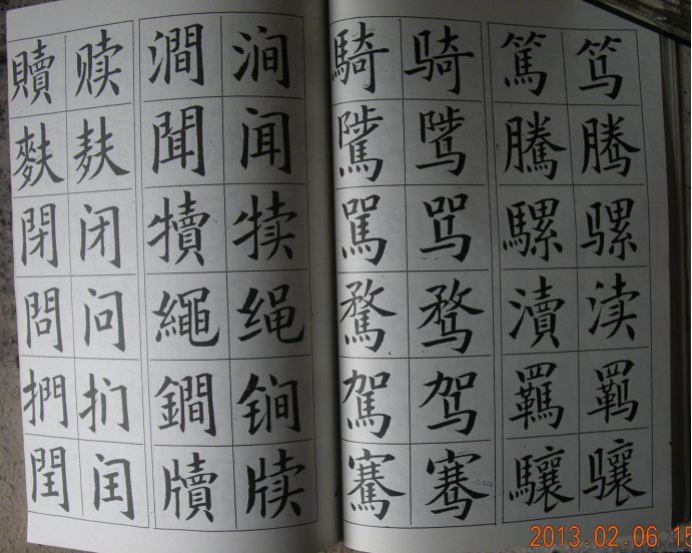 贖 赎 澗 涧
麩 麸 聞 闻
閉 闭 犢 犊
問 问 繩 绳
捫 扪 鐧 锏
閏 闰 牘 牍
騎 骑 篤 笃
騭 骘 騰 腾
駡 骂 騾 骡
騖 骛 瀆 渎
駕 驾 羈 羁
騫 骞 驤 骧
2013.02.06 15